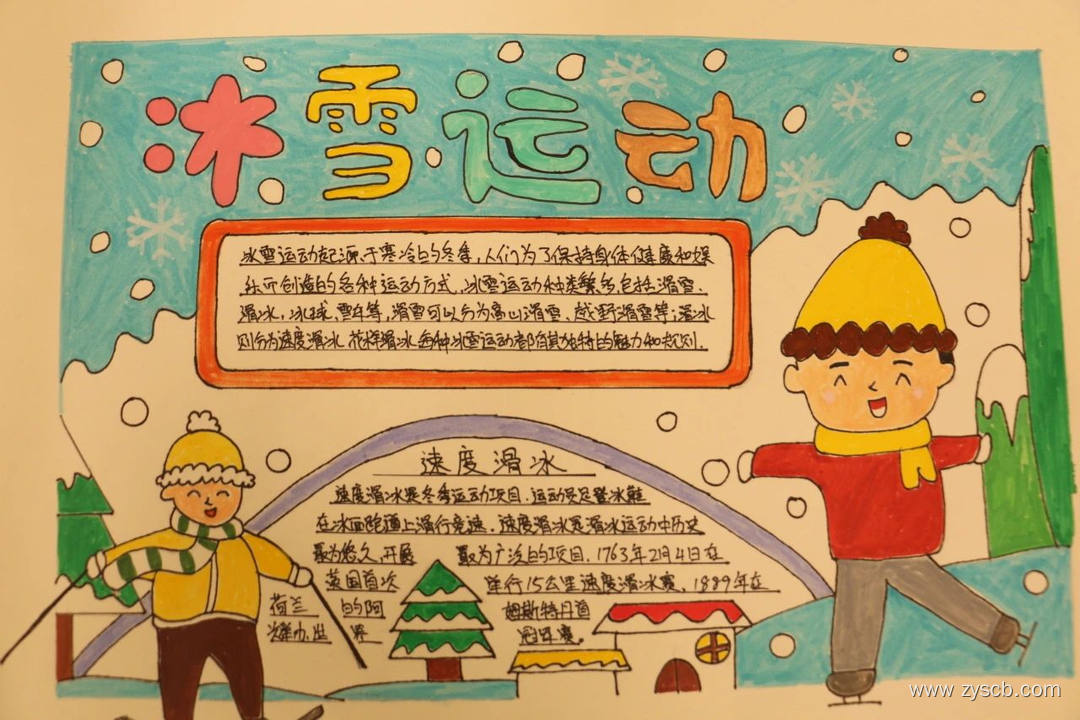 冰雪运动
冰雪运动起源于寒冷的冬季,人们为了保持身体健康和娱
乐而创造的各种运动方式,冰雪运动种类繁多,包括:滑雪、
滑冰,冰球,雪车等,滑雪可以分为高山滑雪、越野滑雪等,滑冰
则分为速度滑冰、花样滑冰,每种冰雪运动都有其独特的魅力和规则.
速度滑冰
速度滑冰是冬季运动项目.运动员足登冰鞋
在冰面跑道上滑行竞速.速度滑冰是滑冰运动中历史
最为悠久,开展 最为广泛的项目,1763年2月4日在
英国首次 举行15公里速度滑冰赛.1889年在
荷兰 的阿 姆斯特丹首
次举办世 界 冠军赛。
www.zyscb.com